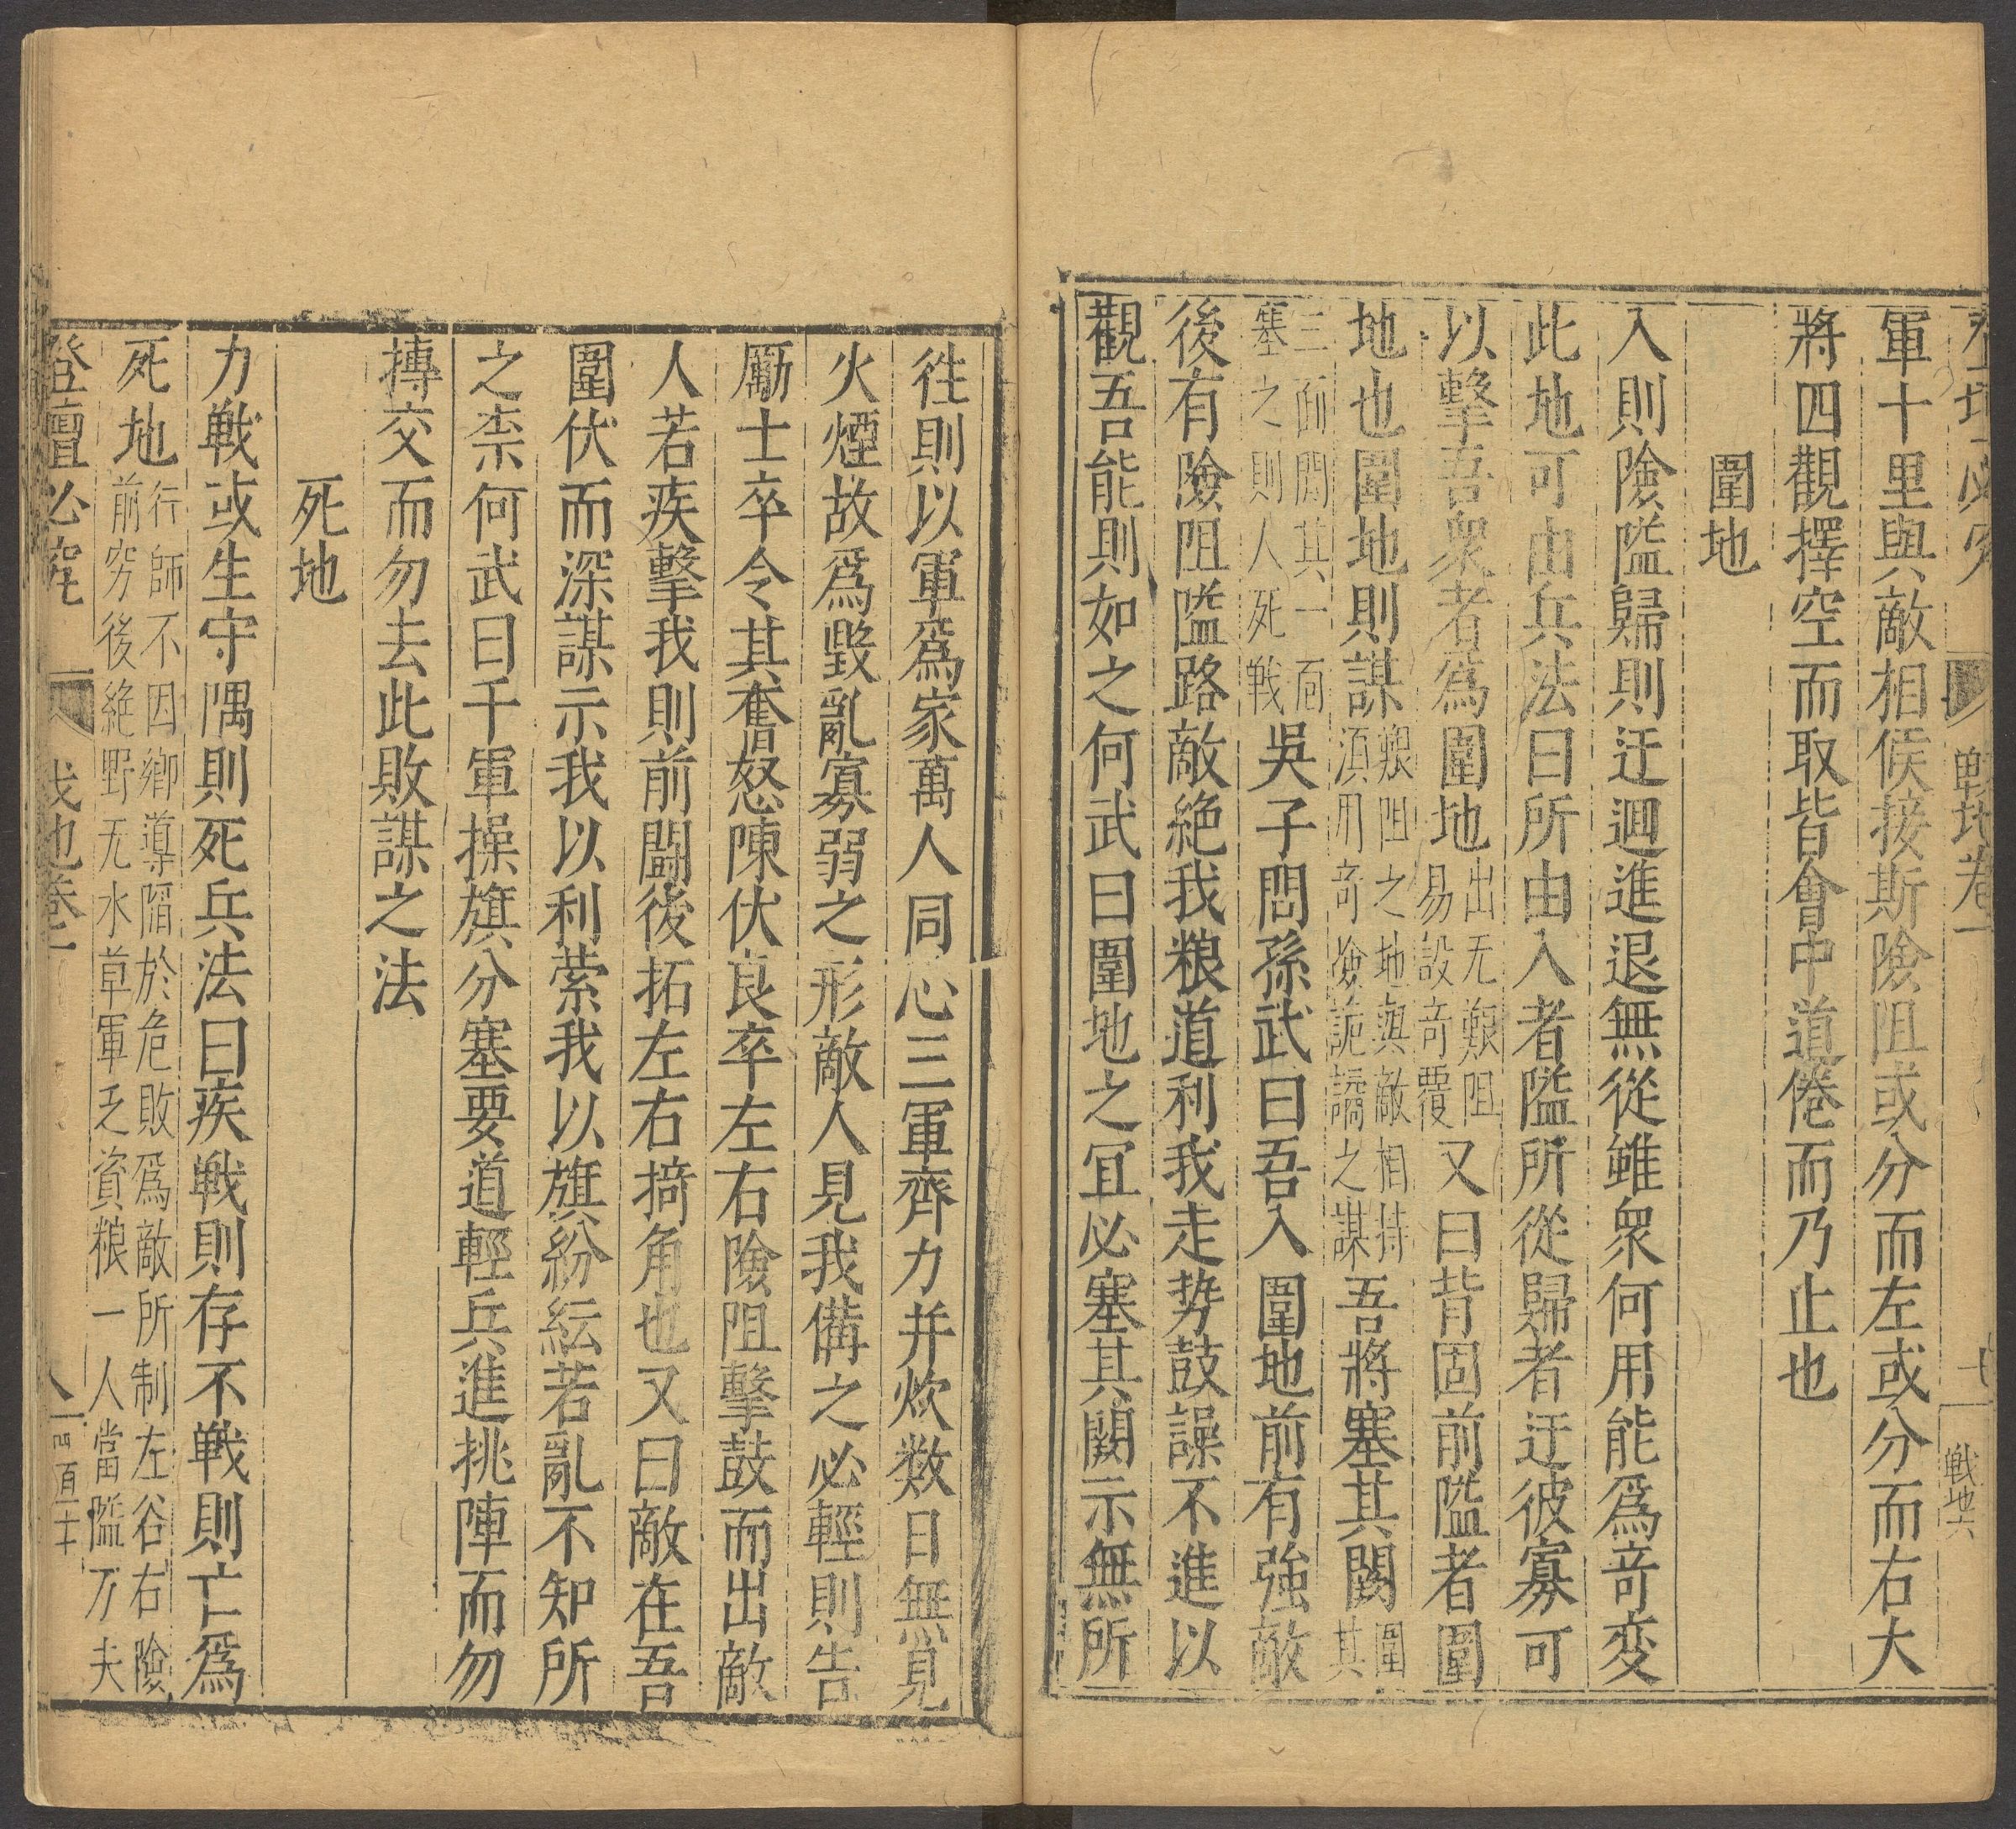 戰地卷
戰地六
軍十里與敵相候接斯險阻或分而左或分而右大
將四觀擇空而取皆會中道倦而乃止也
圍地
入則險隘歸則迂迴進退無從雖衆何用能爲竒変
此地可由兵法曰所由入者隘所從歸者迂彼寡可
以擊吾衆者爲圍地出无艱阻易設竒覆又曰背固前隘者圍
地也圍地則謀艱阻之地與敵相持湏用竒險詭譎之謀吾將塞其闕圍其
三面開其一面塞之則人死戰吳子問孫武曰吾入圍地前有強敵
後有險阻隘路敵絶我粮道利我走势鼓譟不進以
觀吾能則如之何武曰圍地之宜必塞其闕示無所
徃則以軍爲家萬人同心三軍齊力并炊数日無見
火煙故爲毀亂寡弱之形敵人見我備之必輕則告
勵士卒令其奮怒陳伏良卒左右險阻擊鼓而出敵
人若疾擊我則前鬪後拓左右掎角也又曰敵在吾
圍伏而深謀示我以利縈我以旗紛紜若亂不知所
之柰何武曰千軍操旗分塞要道輕兵進挑陣而勿
摶交而勿去此敗謀之法
死地
力戰或生守隅則死兵法曰疾戰則存不戰則亡爲
死地行師不因鄉導陷於危敗爲敵所制左谷右險前穷後絶野无水草軍乏資粮一人當隘万夫
登壇必究